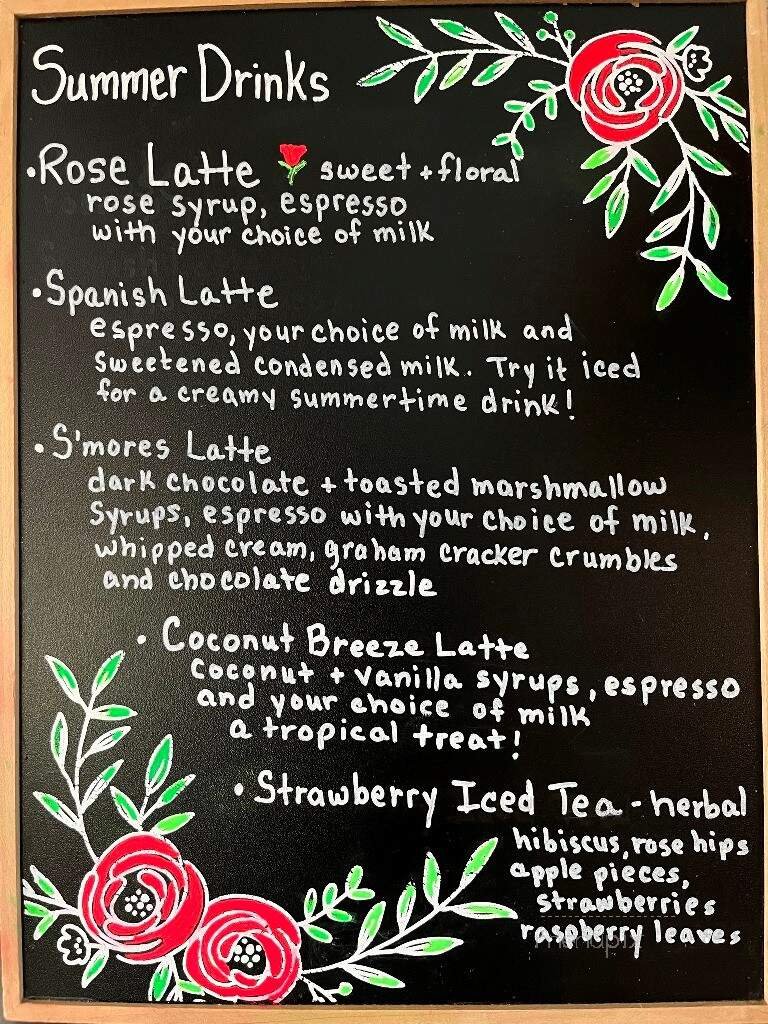 Summer Drinks
• Rose Latte sweet + floral
rose syrup, espresso
with your choice of milk
• Spanish Latte
espresso, your choice of milk and
sweetened condensed milk. Try it iced
for a creamy summertime drink!
• S'mores Latte
dark chocolate + toasted marshmallow
syrups, espresso with your choice of milk,
whipped cream, graham cracker crumbles
and chocolate drizzle
• Coconut Breeze Latte
coconut + vanilla syrups, espresso
and your choice of milk
a tropical treat!
• Strawberry Iced Tea - herbal
hibiscus, rose hips
apple pieces,
strawberries
raspberry leaves